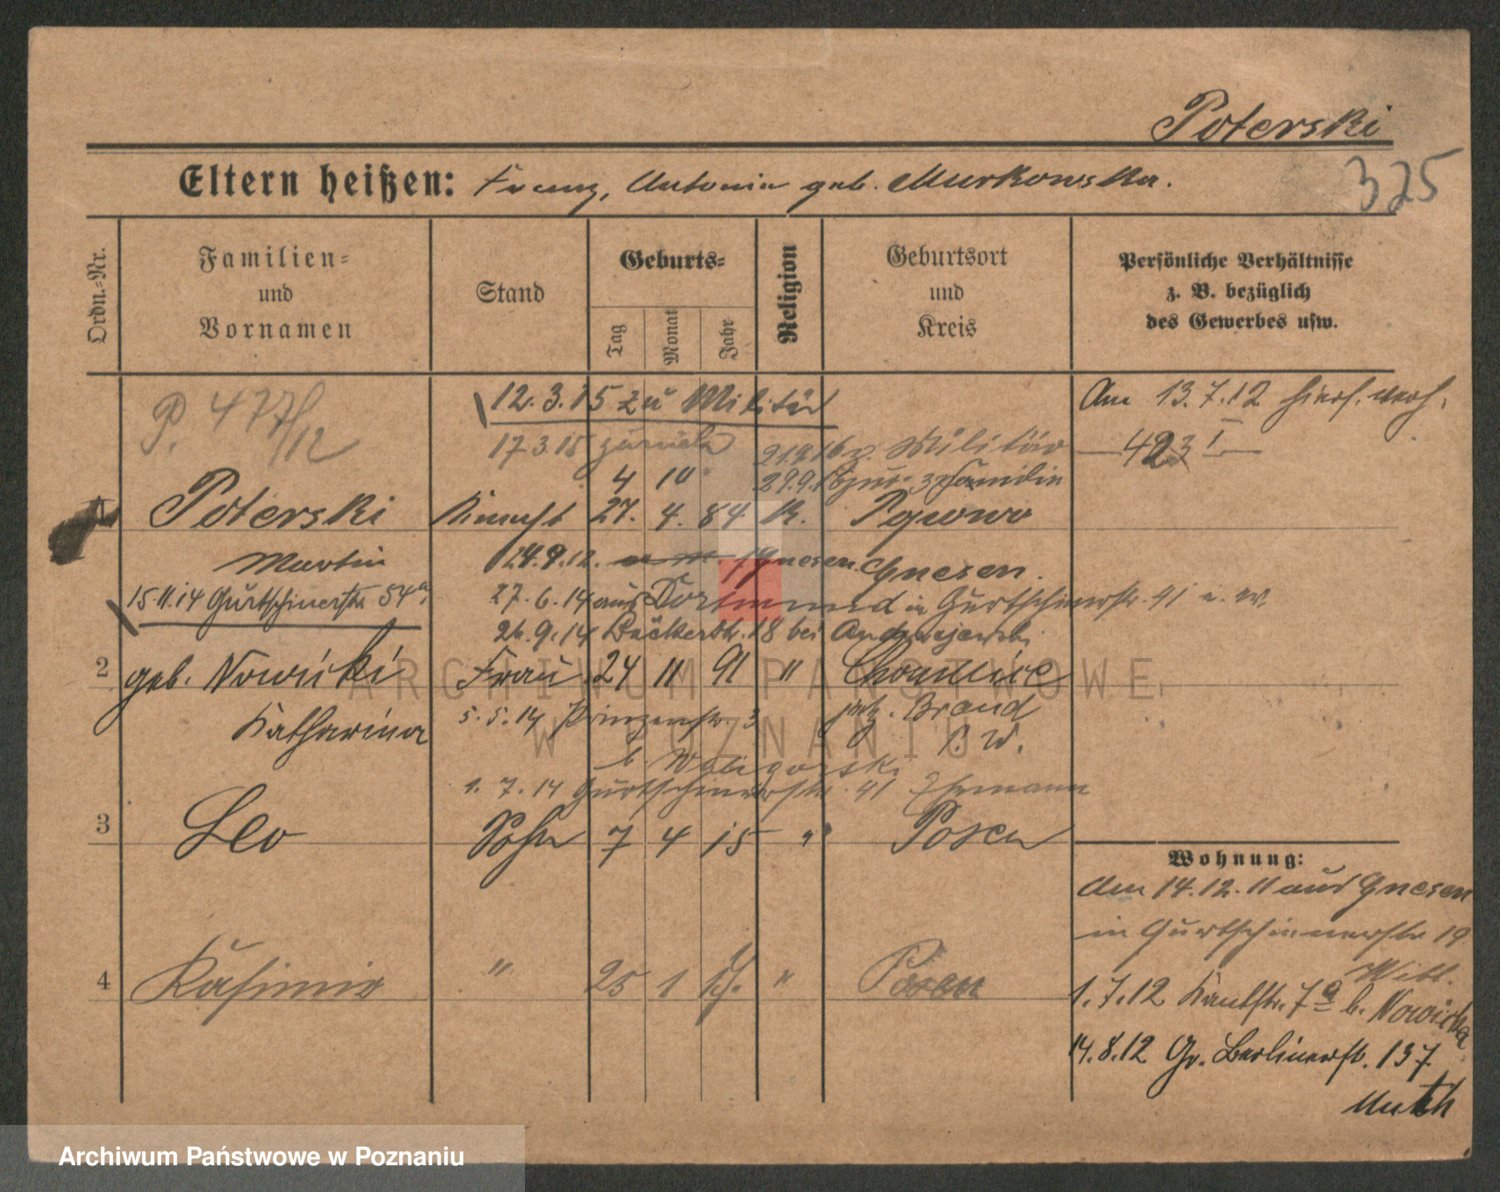 Poterski
325
Eltern heißen: Franz, Antonie geb. Murkowska.
Ordn.-Nr.
Familien- und Vornamen
Stand
Geburts-
Tag
Monat
Jahr
Religion
Geburtsort und Kreis
Persönliche Verhältnisse
z. B. bezüglich
des Gewerbes usw.
P. 477/12
12.3.15 zu Militär
Am 13.7.12
17.3.15 zurück
Militär
423 I
4 10
29.9.16 zur Familie
1 Poterski 27. 4. 84 K.
Martin
14.9.12. Gnesen Gnesen.
15.11.14 Gurtschinerstr. 54a
27.6.14 aus Dortmund in Gurtschinerstr. 41
26.9.14 Bäckerstr. 18 bei
2 geb. Nowicki Frau 24 11 91 "
Katharina
5.5.14 Prinzenstr. 3
b. Waligorski
1.7.14 Gurtschinerstr. 41 Ehemann
3 Leo Sohn 7 4 15 " Posen
Wohnung:
Am 14.12.11 aus Gnesen
in Gurtschinerstr. 19
4 Kasimir " 25 1 " Posen
1.7.12 Kantstr. 7a b. Nowicka
14.8.12 Gr. Berlinerstr. 137
ARCHIWUM PAŃSTWOWE
W POZNANIU
Archiwum Państwowe w Poznaniu